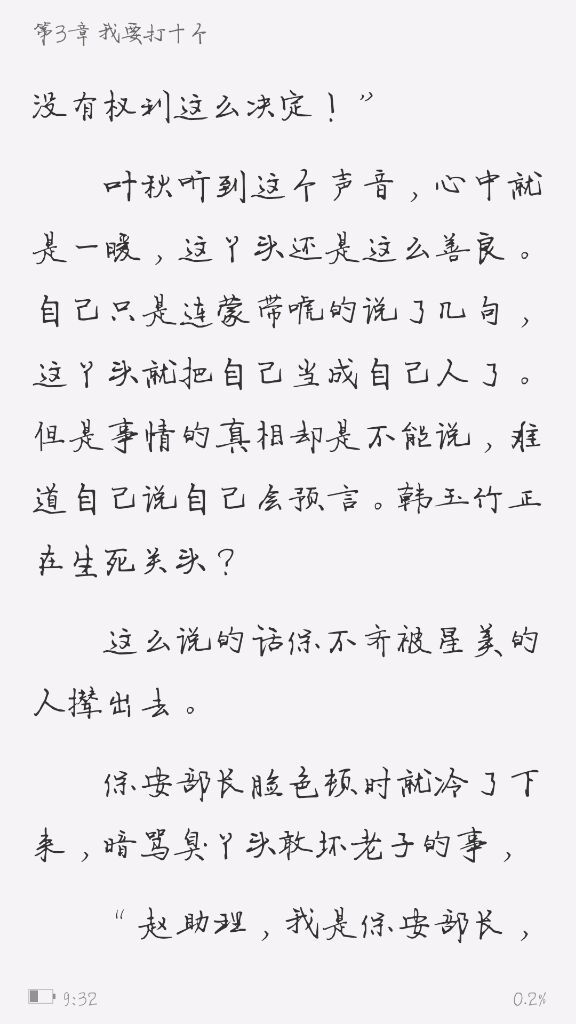 第3章 我要打十个
没有权利这么决定！”
叶秋听到这个声音，心中就
是一暖，这丫头还是这么善良。
自己只是连蒙带唬的说了几句，
这丫头就把自己当成自己人了。
但是事情的真相却是不能说，难
道自己说自己会预言。韩玉竹正
在生死关头？
这么说的话保不齐被星美的
人撵出去。
保安部长脸色顿时就冷了下
来，暗骂臭丫头敢坏老子的事，
“赵助理，我是保安部长，
9:32
0.2%